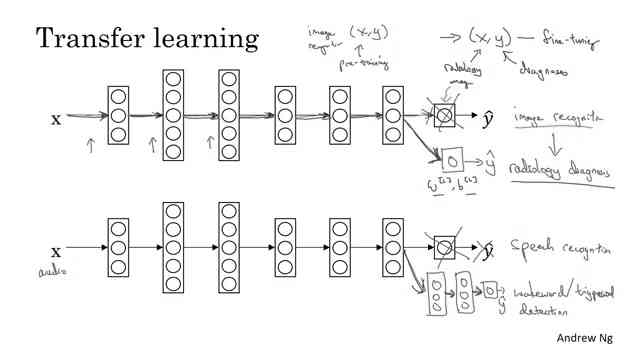 Transfer learning
image recognition (x, y)
pre-training
→ (x, y) — fine-tuning
radiology images
diagnoses
x
ŷ
image recognition
ŷ
radiology diagnosis
w[L], b[L]
x
audio
ŷ
Speech recognition
wakeword/triggerword
detection
ŷ
Andrew Ng